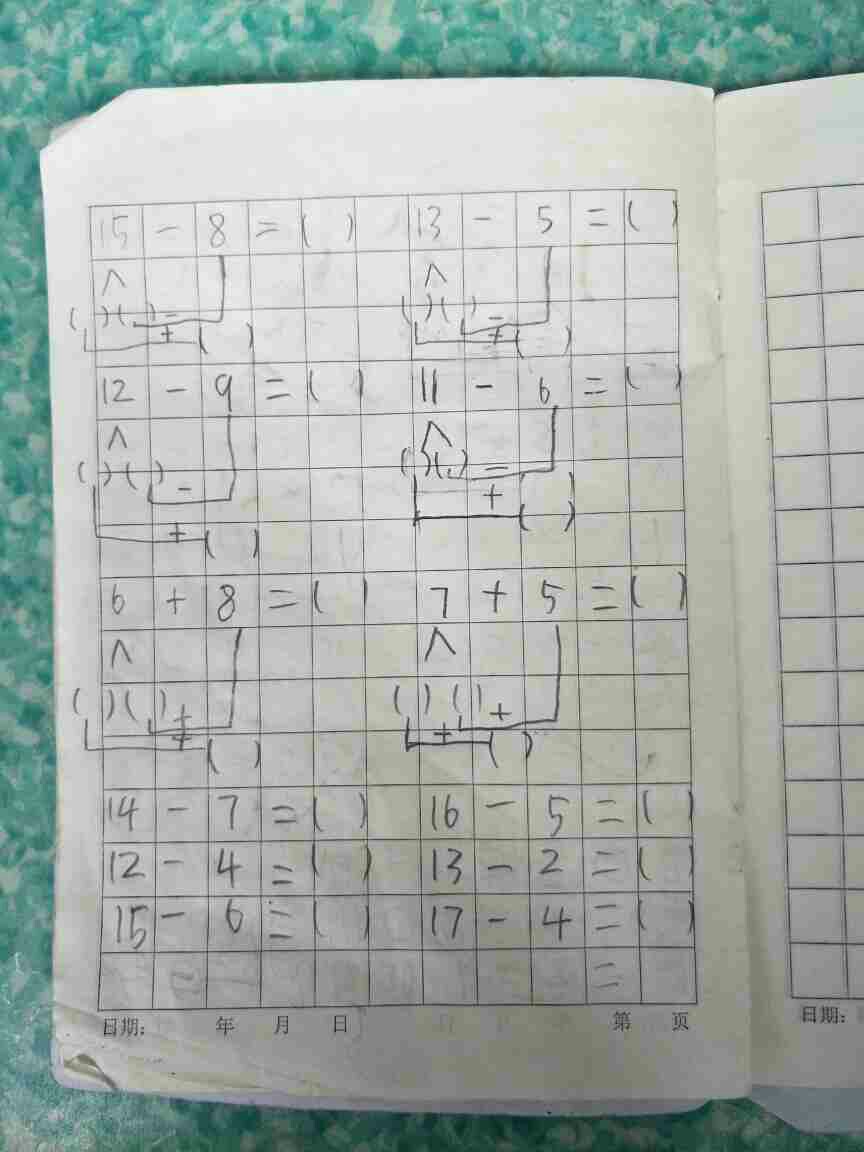 15 - 8 = ( ) 13 - 5 = ( )
( ) ( ) - ( ) ( ) -
+ ( ) + ( )
12 - 9 = ( ) 11 - 6 = ( )
( ) ( ) - ( ) ( ) -
+ ( ) + ( )
6 + 8 = ( ) 7 + 5 = ( )
( ) ( ) + ( ) ( ) +
+ ( ) + ( )
14 - 7 = ( ) 16 - 5 = ( )
12 - 4 = ( ) 13 - 2 = ( )
15 - 6 = ( ) 17 - 4 = ( )
=
日期: 年 月 日 第 页
日期: